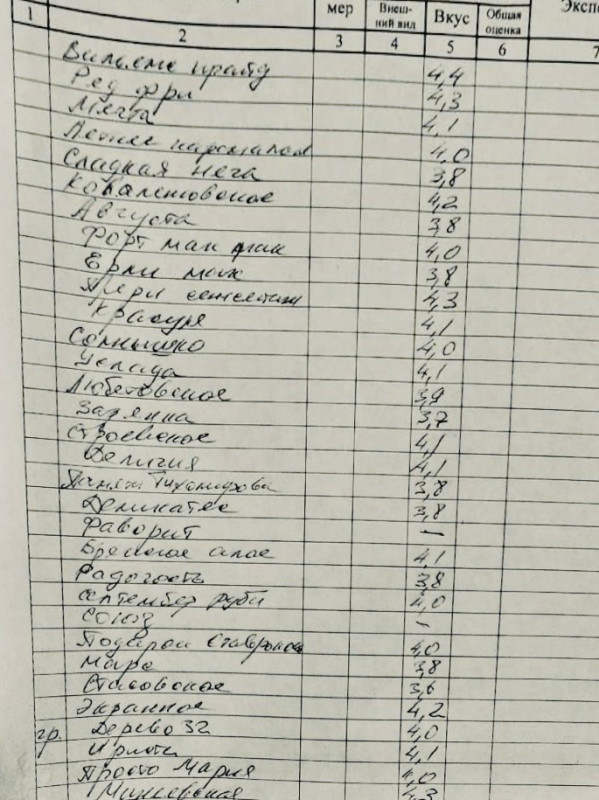 мер Внеш- ний вид Вкус Общая оценка Эксп
1 2 3 4 5 6 7
Вильямс прайд 4,4
Ред фри 4,3
Мечта 4,1
Летнее 4,0
Сладкая нега 3,8
Коваленковское 4,2
Августа 3,8
Форт мак 4,0
Ерли мак 3,8
4,3
Красуля 4,1
Солнышко 4,0
Услада 4,1
Любетовское 3,9
Зарянка 3,7
Строевское 4,1
Делигия 4,1
Тихомирова 3,8
Деликатес 3,8
Фаворит —
алое 4,1
Радогость 3,8
Септембер руби 4,0
Союз -
Подарок 4,0
Маяк 3,8
Спасовское 3,6
Экранное 4,2
гр. Дерево 32 4,0
4,1
Просто Мария 4,0
4,3